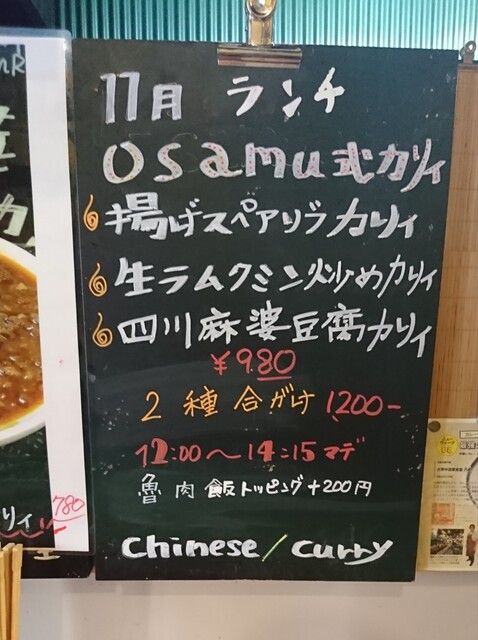 11月 ランチ
osamu式カリィ
揚げスペアリブカリィ
生ラムクミン炒めカリィ
四川麻婆豆腐カリィ
¥980
2種合がけ 1,200-
12:00〜14:15マデ
魯肉飯トッピング+200円
chinese/curry
リィ
780